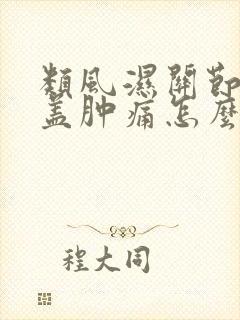 類風濕關節
盖肿痛怎麼
程大同